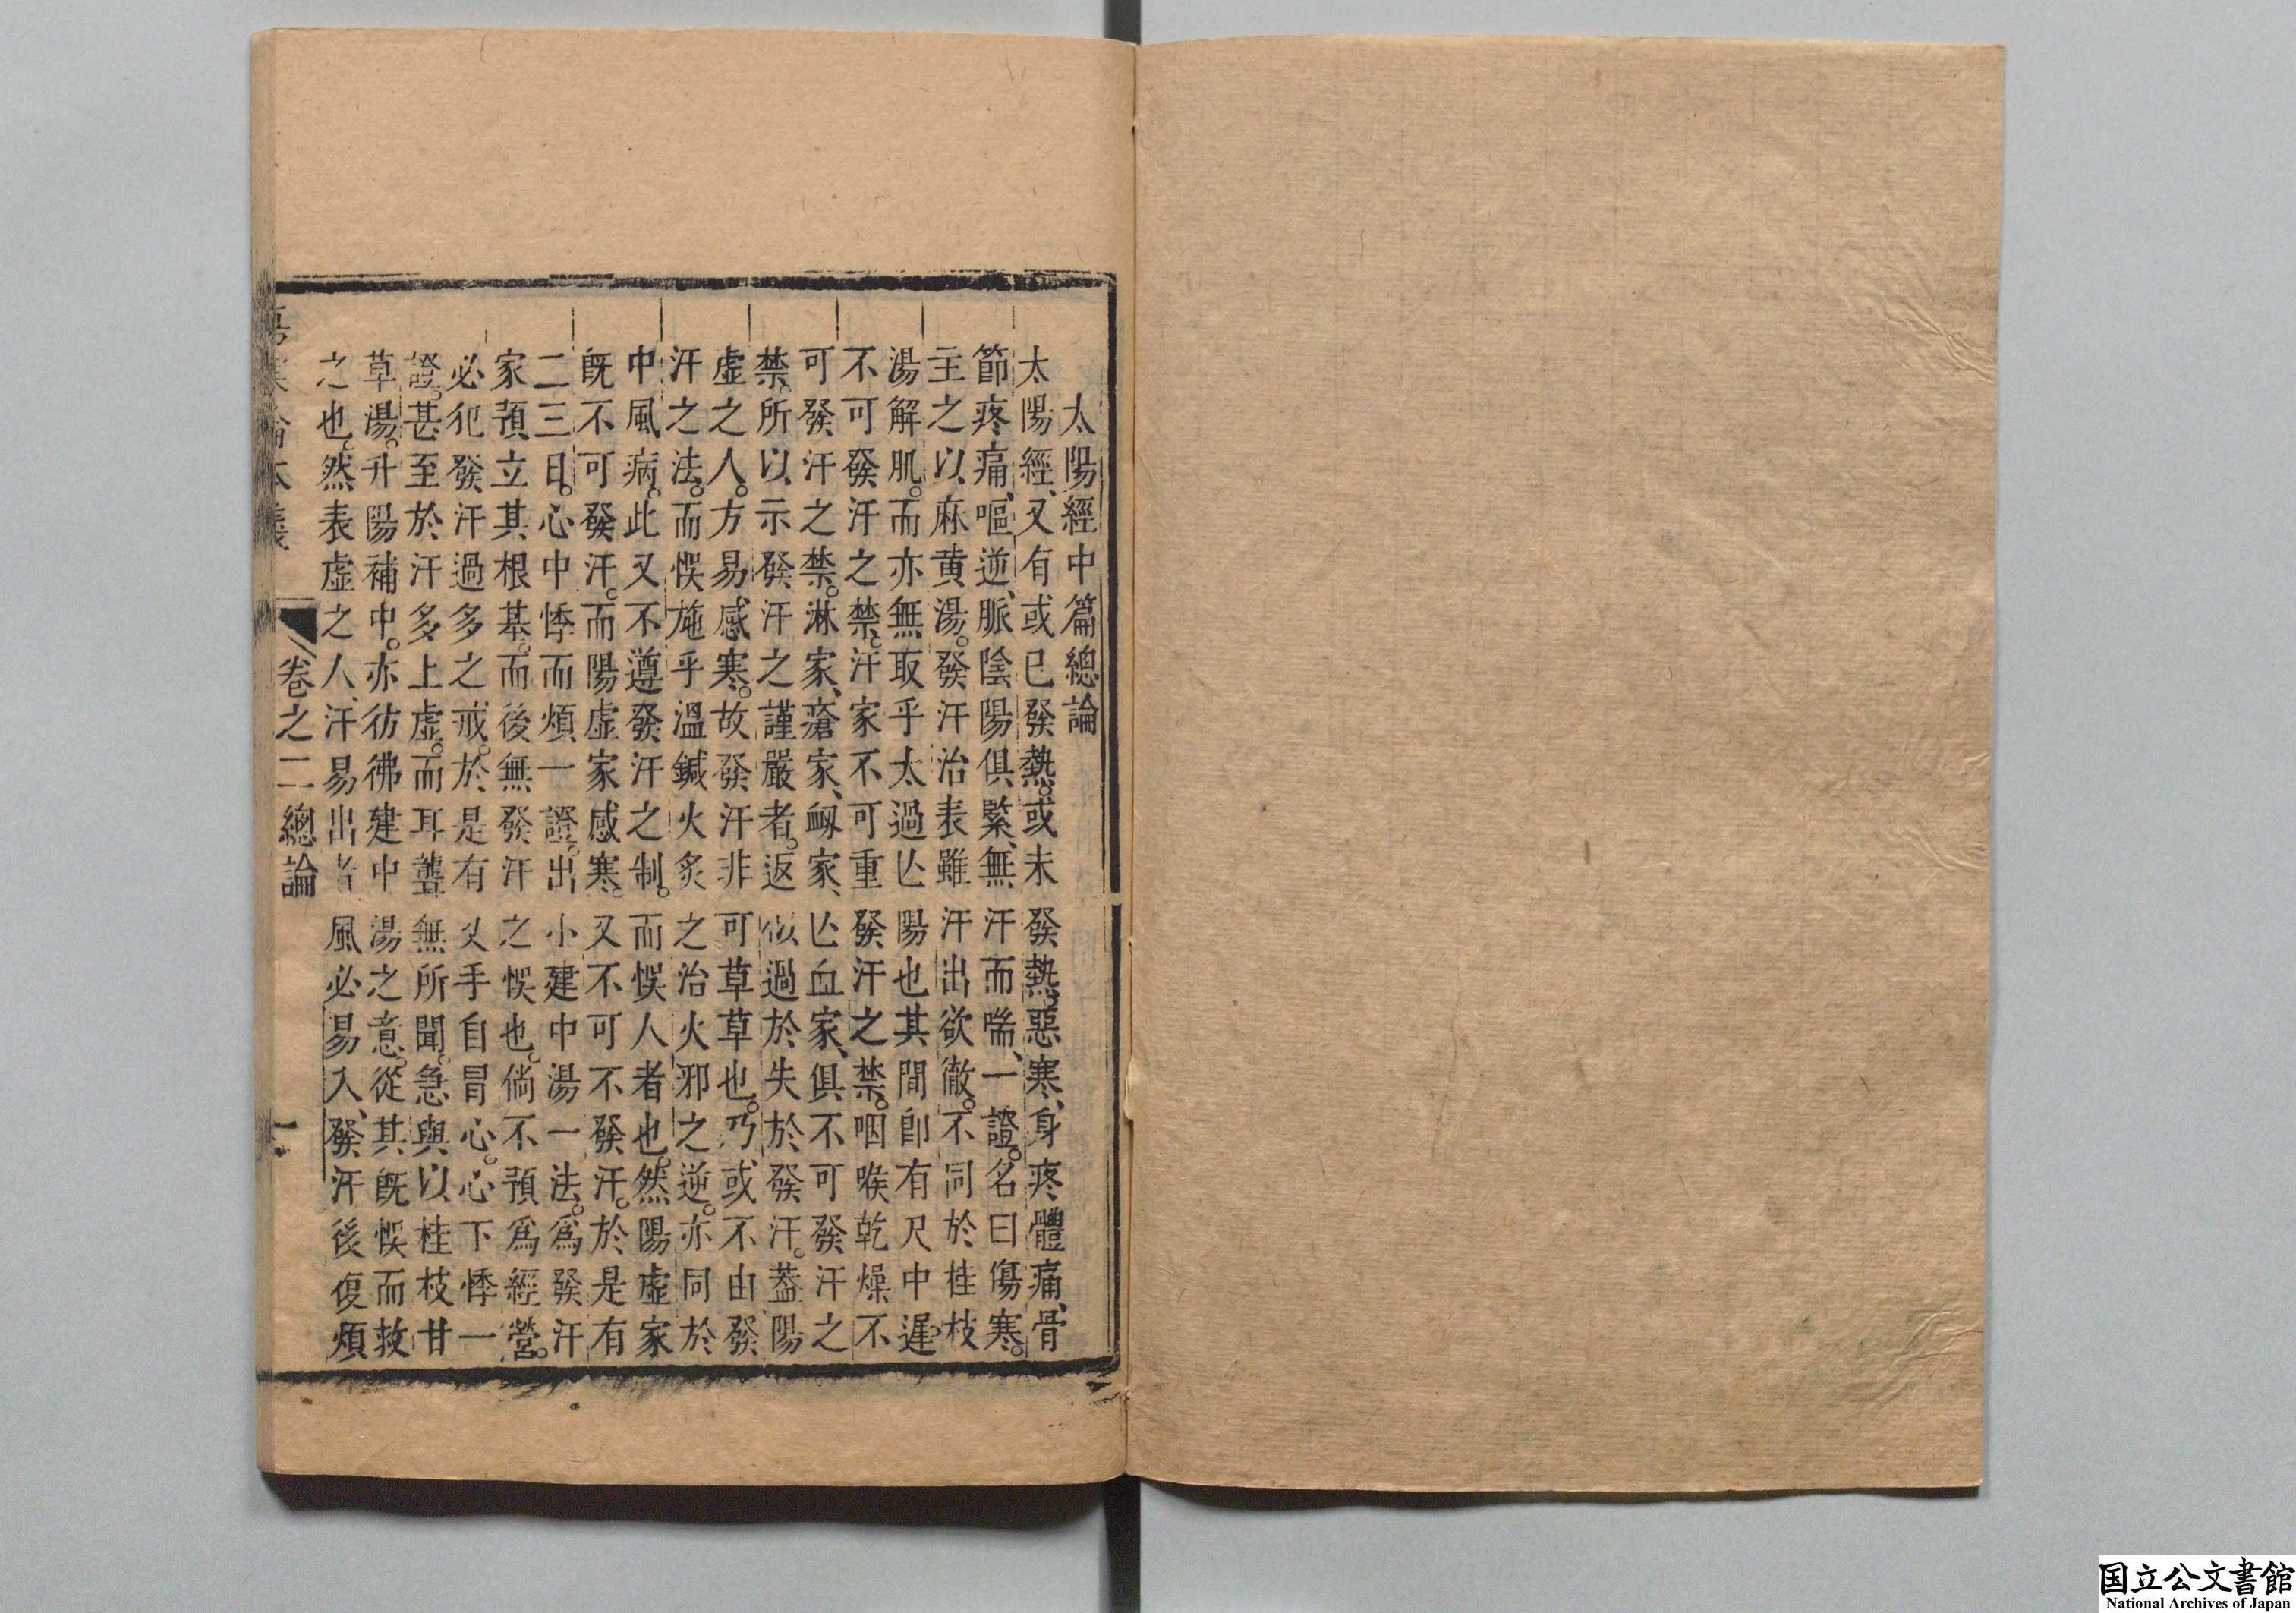 太陽經中篇總論
太陽經、又有或已發熱。或未發熱、惡寒、身疼體痛、骨
節疼痛、嘔逆、脈陰陽俱緊、無汗而喘、一證。名曰傷寒。
主之以麻黄湯。發汗治表雖汗出欲徹。不同於桂枝
湯解肌。而亦無取乎太過亾陽也其間卽有尺中遲。
不可發汗之禁。汗家不可重發汗之禁。咽喉乾燥不
可發汗之禁。淋家、瘡家、衂家、亾血家、俱不可發汗之
禁。所以示發汗之謹嚴者。返似過於失於發汗。葢陽
虛之人。方易感寒。故發汗非可草草也。乃或不由發
汗之法。而悞施乎溫鍼火炙之治火邪之逆。亦同於
中風病。此又不遵發汗之制。而悞人者也。然陽虛家
旣不可發汗。而陽虛家感寒。又不可不發汗。於是有
二三日。心中悸而煩一證。出小建中湯一法。爲發汗
家預立其根基。而後無發汗之悞也。倘不預爲經營。
必犯發汗過多之戒。於是有叉手自冒心。心下悸一
證。甚至於汗多上虛。而耳聾無所聞。急與以桂枝甘
草湯。升陽補中。亦彷彿建中湯之意。從其旣悞而救
之也。然表虛之人、汗易出者風必易入、發汗後復煩
卷之二總論 一
国立公文書館
National Archives of Japan